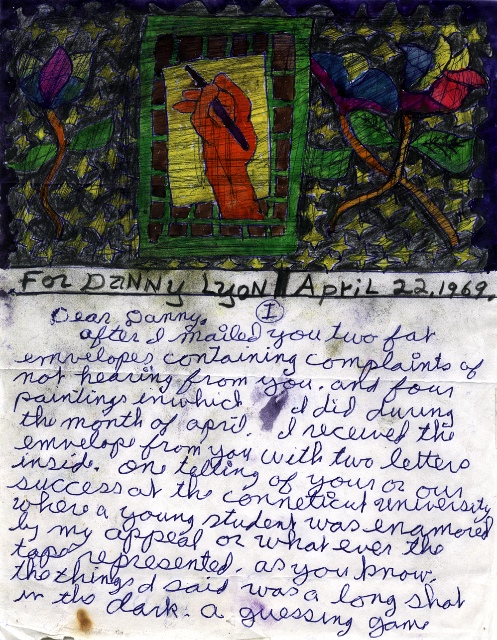 For DANNY Lyon April 22, 1969.
I
Dear Danny,
after I mailed you two fat
emvelopes containing complaints of
not hearing from you. and four
paintings inwhich I did during
the month of april. I received the
emvelope from you with two letters
inside. one telling of your or our
success at the conneticut university
where a young student was enamored
by my appeal or what ever the
tapes represented. as you know,
the things I said was a long shot
in the dark. a guessing game